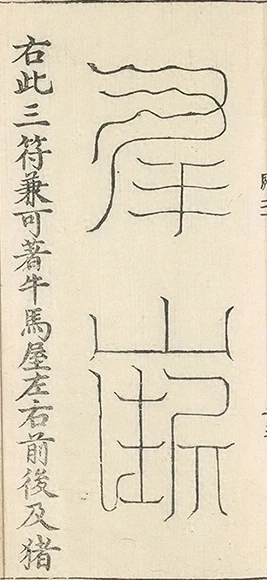 右此三符兼可著牛馬屋左右前後及猪